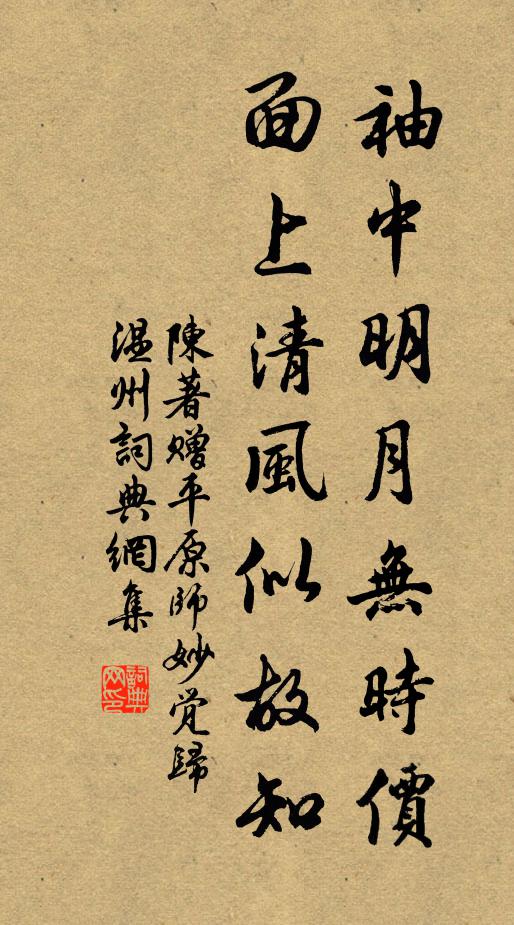 袖中明月無時價
面上清風似故知
陳著赠平原師妙覚歸
温州詞典網集
詞典网印